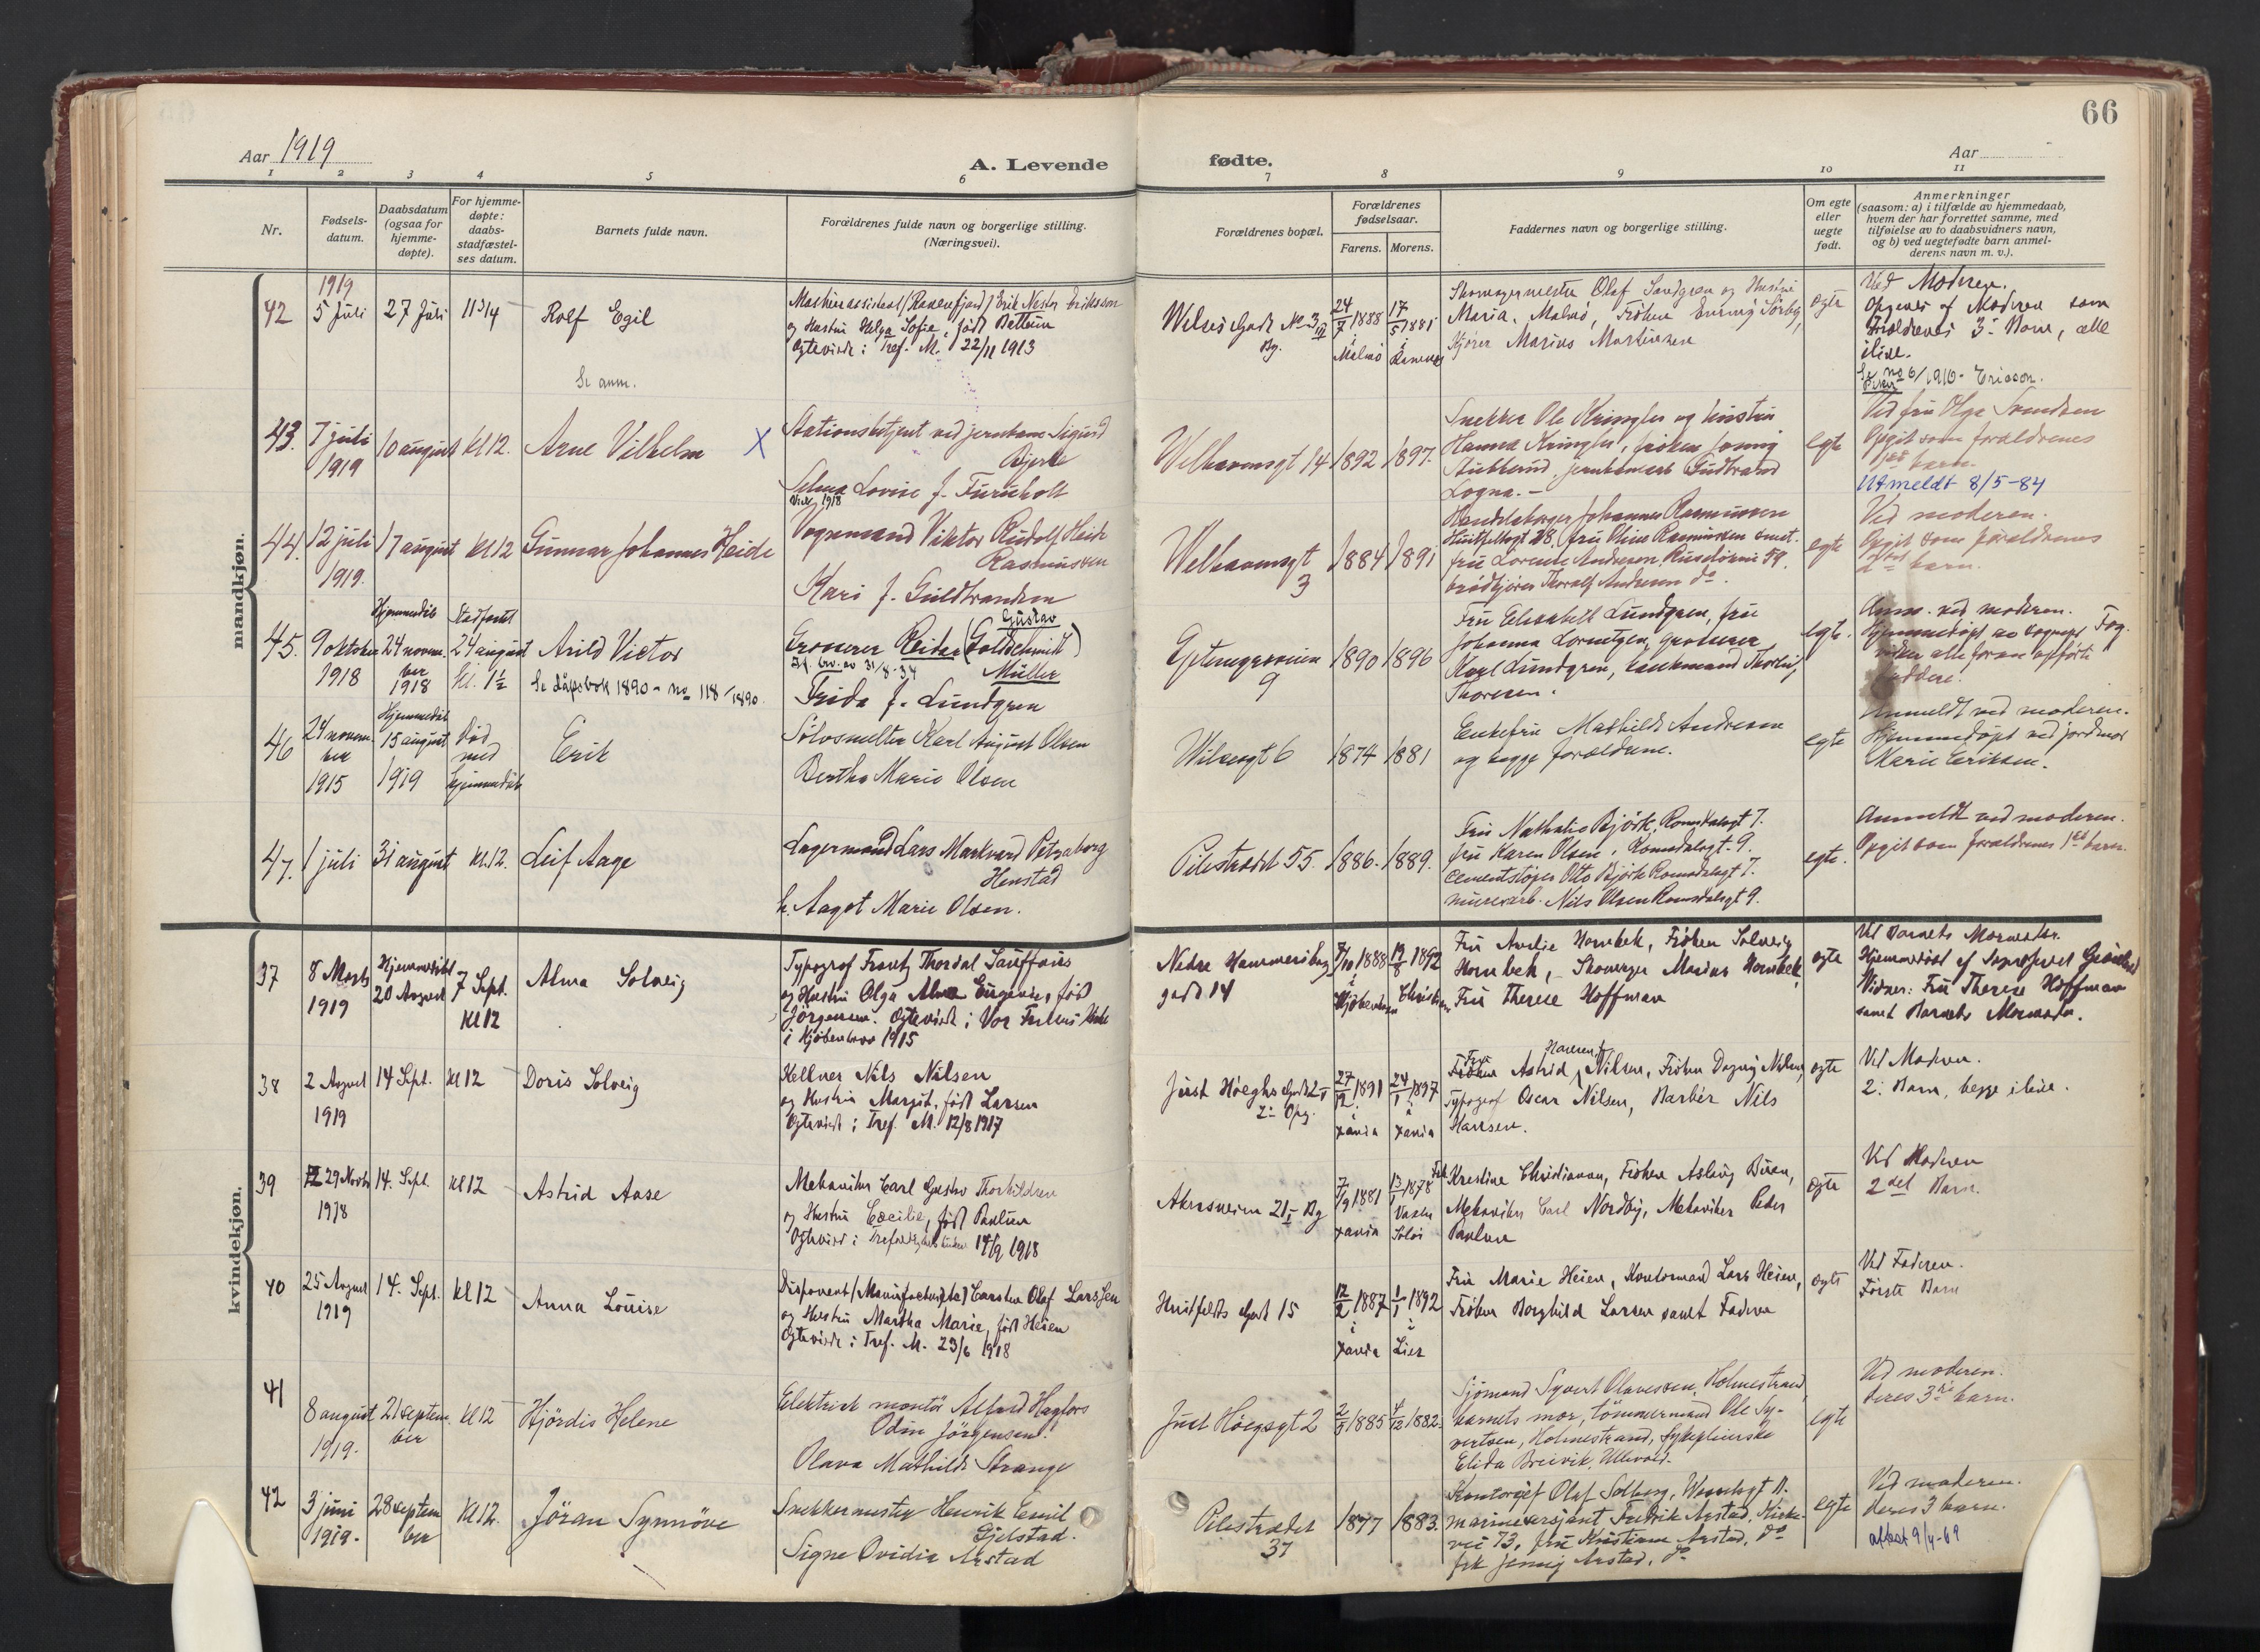 66
Aar 1919
A. Levende
fødte.
Aar
1 2 3 4 5 6 7 8 9 10 11
Nr.
Fødsels-
datum.
Daabsdatum
(ogsaa for
hjemme-
døpte).
For hjemme-
døpte:
daabs-
stadfæstel-
ses datum.
Barnets fulde navn.
Forældrenes fulde navn og borgerlige stilling.
(Næringsvei).
Forældrenes bopæl.
Forældrenes
fødselsaar.
Farens. Morens.
Faddernes navn og borgerlige stilling.
Om egte
eller
uegte
født.
Anmerkninger
(saasom: a) i tilfælde av hjemmedaab,
hvem der har forrettet samme, med
tilføielse av to daabsvidners navn,
og b) ved uegtefødte barn anmel-
derens navn m. v.).
mandkjøn.
42
1919
5 Juli
27 Juli
11 3/4
Rolf Egil
Se anm.
og Hustru Helga Sofie, født Bettum
Ogteviede i Tref. M. 22/11 1913
24/7 1888
i
Malmø
17/5 1881
i
Olaf Sandgren og Hustru
Maria, Malmø, Frøken
Marius Martinsen
ogte
Ved Moderen.
Opgives af Moderen som
Forældrenes 3. Barn, alle
ilive.
Se no 6/1910 - Ericson.
43.
7 juli
1919
10 august
kl 12.
Arne Vilhelm X
Stationsbetjent ved jernbane Sigurd
Bjerke
Selma Lovise f. Furuholt
Viet 1918
Welhavensgt 14
1892
1897.
Snekker Ole Kringler og hustru
Hanna Kringler, frøken
Stubberud, Gudbrand
Logna. -
egte
Ved fru Olga Svendsen
Opgit som forældrenes
1ste barn.
Utmeldt 8/5-84
44.
12 juli
1919.
17 august
kl 12
Gunnar Johannes Heide
Vognmand Viktor Rudolf Heide
Rasmussen
Kari f. Guldbrandsen
Welhavensgt
3
1884
1891
Johannes Rasmussen
Huitfeldtsgt 28, fru Rasmussen samt.
fru Andersen, 59,
brødkjører Thoralf Andersen do.
egte
Ved moderen.
Opgit som forældrenes
barn.
45.
9 oktober
1918
Hjemmedøb
24 novem-
ber
1918
Stadfæstet
24 august
kl. 1½
Arild Victor
Se dåpsbok 1890 - no 118/1890.
Gustav
Reider (Goldschmidt)
Müller
31/8-34
Frida f. Lundgren
9
1890
1896
Fru Elisabeth Lundgren, fru
Johanna
Karl Lundgren,
Thoresen.
egte.
Anm. ved moderen.
Hjemmedøpt av sogneprest
46
24 novem-
ber
1915
Hjemmedøb
15 august
1919
Død
med
hjemmedøb
Erik
Sølvsmelter Karl August Olsen
Bertha Marie Olsen
Wilsesgt 6
1874
1881
Enkefru Mathilde Andresen
og begge forældrene.
egte
Anmeldt ved moderen.
Hjemmedøpt ved jordmor
Marie Eriksen.
47.
1 juli
31 august
kl. 12.
Leif Aage
Lagermand Lars Markvard
Henstad
h. Aagot Marie Olsen.
Pilestrædet 55.
1886.
1889.
Fru Nathalie Bjørk, Romsdalsgt 7.
fru Karen Olsen, Romsdalsgt. 9.
cementstøper Otto Bjørk Romsdalsgt 7.
murerarb. Nils Olsen Romsdalsgt 9.
egte.
Anmeldt ved moderen.
Opgit som forældrenes 1ste barn.
kvindekjøn.
37
8 Marts
1919
Hjemmedøbt
20 August
7 Sept.
Kl 12
Alma Solveig
Typograf Frantz Thordal
og Hustru Olga Alma Eugenie, født
Jørgensen. Ogteviede i Vor Frelsers Kirke
i Kjøbenhavn 1915
Nedre Hammersborg
gade 14
7/10 1888
i
Kjøbenhavn
19/8 1892
Fru Amelie Hornbek, Frøken Solveig
Hornbek, Skomager Marius Hornbek,
Fru Therese Hoffman
ogte
Ved Barnets Mormoder.
Hjemmedøbt af Sognepræst
Vidner: Fru Therese Hoffman
samt Barnets Mormoder.
38
2 August
1919
14 Sept.
Kl 12
Doris Solveig
Kellner Nils Nilsen
og Hustru Margit, født Larsen
Ogteviede i Tref. M. 12/8 1917
Just Høeghs Gade 2 I
2. Opg.
27/12 1891
i
Xania
24/1 1897
i
Xania
Fru Astrid Hansen f. Nilsen, Frøken Dagny Nilsen
Typograf Oscar Nilsen, Barbér Nils
Hansen.
ogte
Ved Moderen.
2. Barn, begge ilive.
39
29 Novbr
1918
14. Sept.
Kl 12
Astrid Aase
Mekaniker Carl Gustav Thorkildsen
og Hustru Cecilie, født Paulsen
Ogteviede i Trefoldighedskirken 14/9 1918
Akersveien 21 I By
7/9 1881
Xania
13/1 1878
Solør
Frk Krestine Christiansen, Frøken Aslaug
Mekaniker Carl Nordby, Mekaniker Peder
Paulsen
ogte
Ved Moderen
2det Barn.
40
25 August
1919
14. Sept.
Kl 12
Anna Louise
Disponent (Manufacturist) Carsten Olaf Larssen
og Hustru Martha Marie, født Heien
Ogteviede i Tref. M. 23/6 1918
Huitfeldts Gade 15
12/2 1887
i
Xania
1/1 1892
i
Lier
Fru Marie Heien, Kontormand Lars Heien,
Frøken Borghild Larsen samt Faderen
ogte
Ved Faderen.
Første Barn
41
8 august
1919.
21 septem-
ber
kl 12
Hjørdis Helene
Elektrisk montør Alfred
Odin Jørgensen.
Olava Mathilde Strange
Just Høegsgt 2
2/3 1885
4/12 1882.
Sjømand Syvert Olavessen, Holmestrand
barnets mor, tømmermand Ole Sy-
vertsen, Holmestrand, sykepleierske
Elida Breivik, Ullevold.
egte
Ved moderen.
deres 3die barn.
42
3 juni
1919.
28 septem
ber
Kl 12.
Jöran Synnöve
Snekkermester Henrik Emil
Gjelstad.
Signe Ovidia Arstad
Pilestrædet
37
1877
1883.
Kontorsjef Olaf Solberg,
marinesersjant Fredrik Arstad, Kirke-
vei 73, fru Kristiane Arstad, do
frk Jenny Arstad, do
egte
Ved moderen.
deres 3 barn.
attest 9/4-69